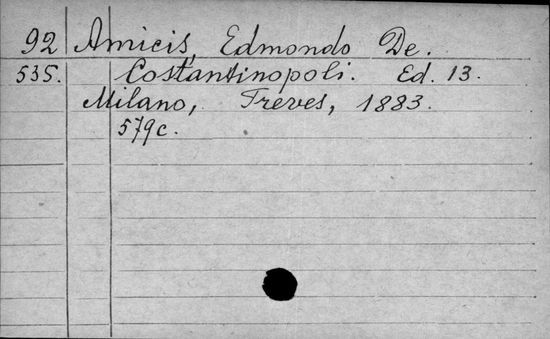 92 Amicis, Edmondo De.
535. Costantinopoli. Ed. 13.
Milano, Treves, 1883.
579c.